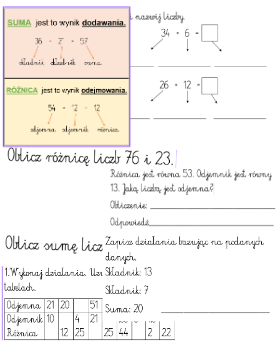 SUMA jest to wynik dodawania.
36 + 21 = 57
składnik składnik suma
RÓŻNICA jest to wynik odejmowania.
54 - 12 = 
odjemna odjemnik różnica
i nazwij liczby.
34 + 6 =
26 + 12 =
Oblicz różnicę liczb 76 i 23.
Różnica jest równa 53. Odjemnik jest równy
13. Jaką liczbą jest odjemna?
Obliczenie:
Odpowiedź:
Oblicz sumę licz
Zapisz działania bazując na podanych
danych.
Składnik: 13
Składnik: 7
Suma: 20
1. Wykonaj działania.
tabelach.
Odjemna 21 20 51
Odjemnik 10 4 21
Różnica 12 25 25 44 2 22